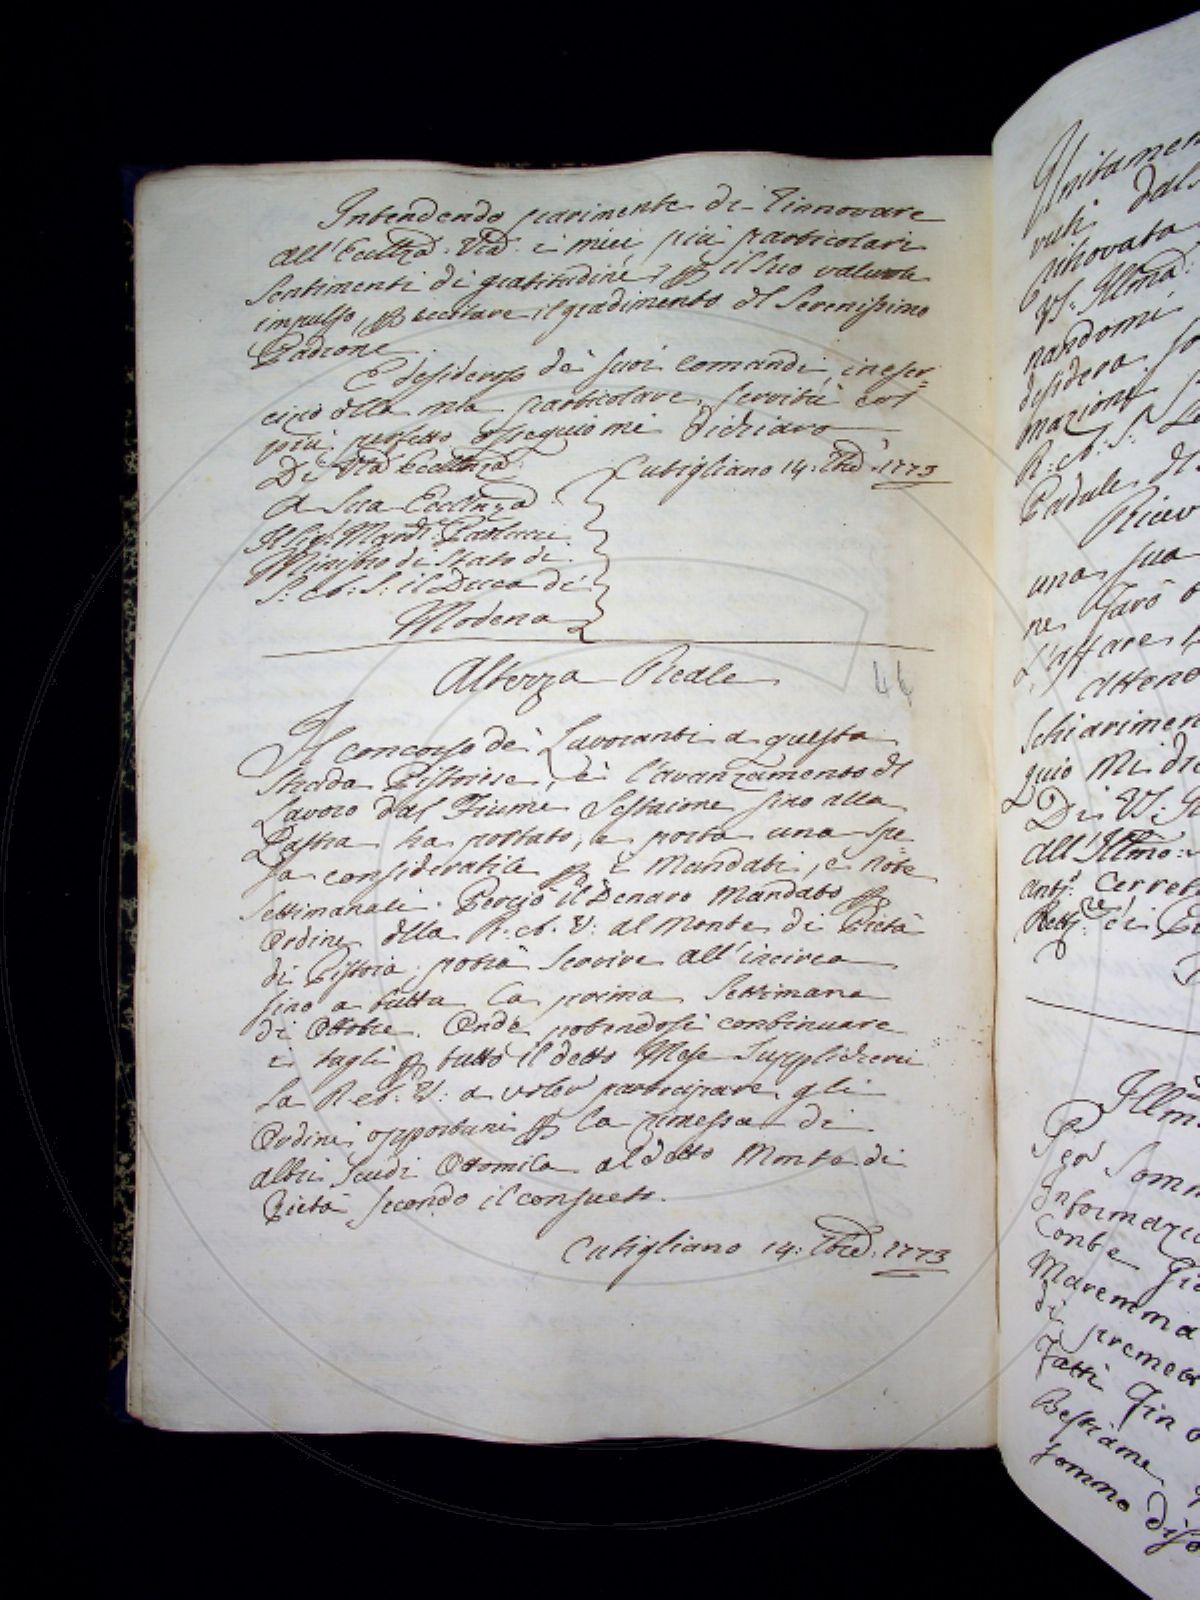 Intendendo parimente di rinnovare
all'Ecclza Vra i miei più particolari
sentimenti di gratitudine p il suo valevole
impulso, p eccitare il gradimento del Serenissimo
Padrone.
E desideroso de' suoi comandi, in eser=
cizio della mia particolare servitù col
più perfetto ossequio mi dichiaro
Di Vra Eccellenza
Cutigliano 14: 7bre 1773
A Sua Eccellenza
Il Sigr. March. Paolucci
Ministro di Stato di
S: A: S: il Duca di
Modena
Altezza Reale
44
Il concorso de' Lavoranti a questa
Strada Pistoiese, e l'avanzamento del
Lavoro dal Fiume Sestaione sino alla
Lastra ha portato, e porta una spe=
sa considerabile p i Mandati, e note
settimanali. Perciò il Denaro mandato p
Ordine della R. A. V: al Monte di Pietà
di Pistoia, potrà servire all'incirca
sino a tutta la prima Settimana
di Ottobre. Onde potendosi continuare
i tagli p tutto il detto Mese supplicherei
La R. A. V: a voler participare gli
Ordini opportuni p la rimessa di
altri Scudi Ottomila al detto Monte di
Pietà secondo il consueto.
Cutigliano 14: 7bre: 1773
Unitamen
ritrovata
VS. Illma
nandomi
desidera
mazioni
R: A: S:
Padule
Ricev
una sua
ne farò
L'affare
Atten
schiarimen
quio mi dic
Di VS: Il
All'Illmo:
Cerret
Illm
Informazio
Conte
Maremma
di premer
fatti fin
Bestiame
sommo